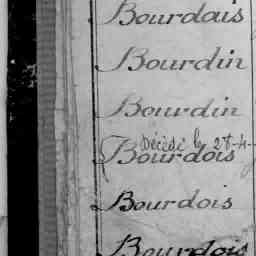 Bourdais
Bourdin
Bourdin
Décédé le 28-4-
Bourdois
Bourdois
Bourdois